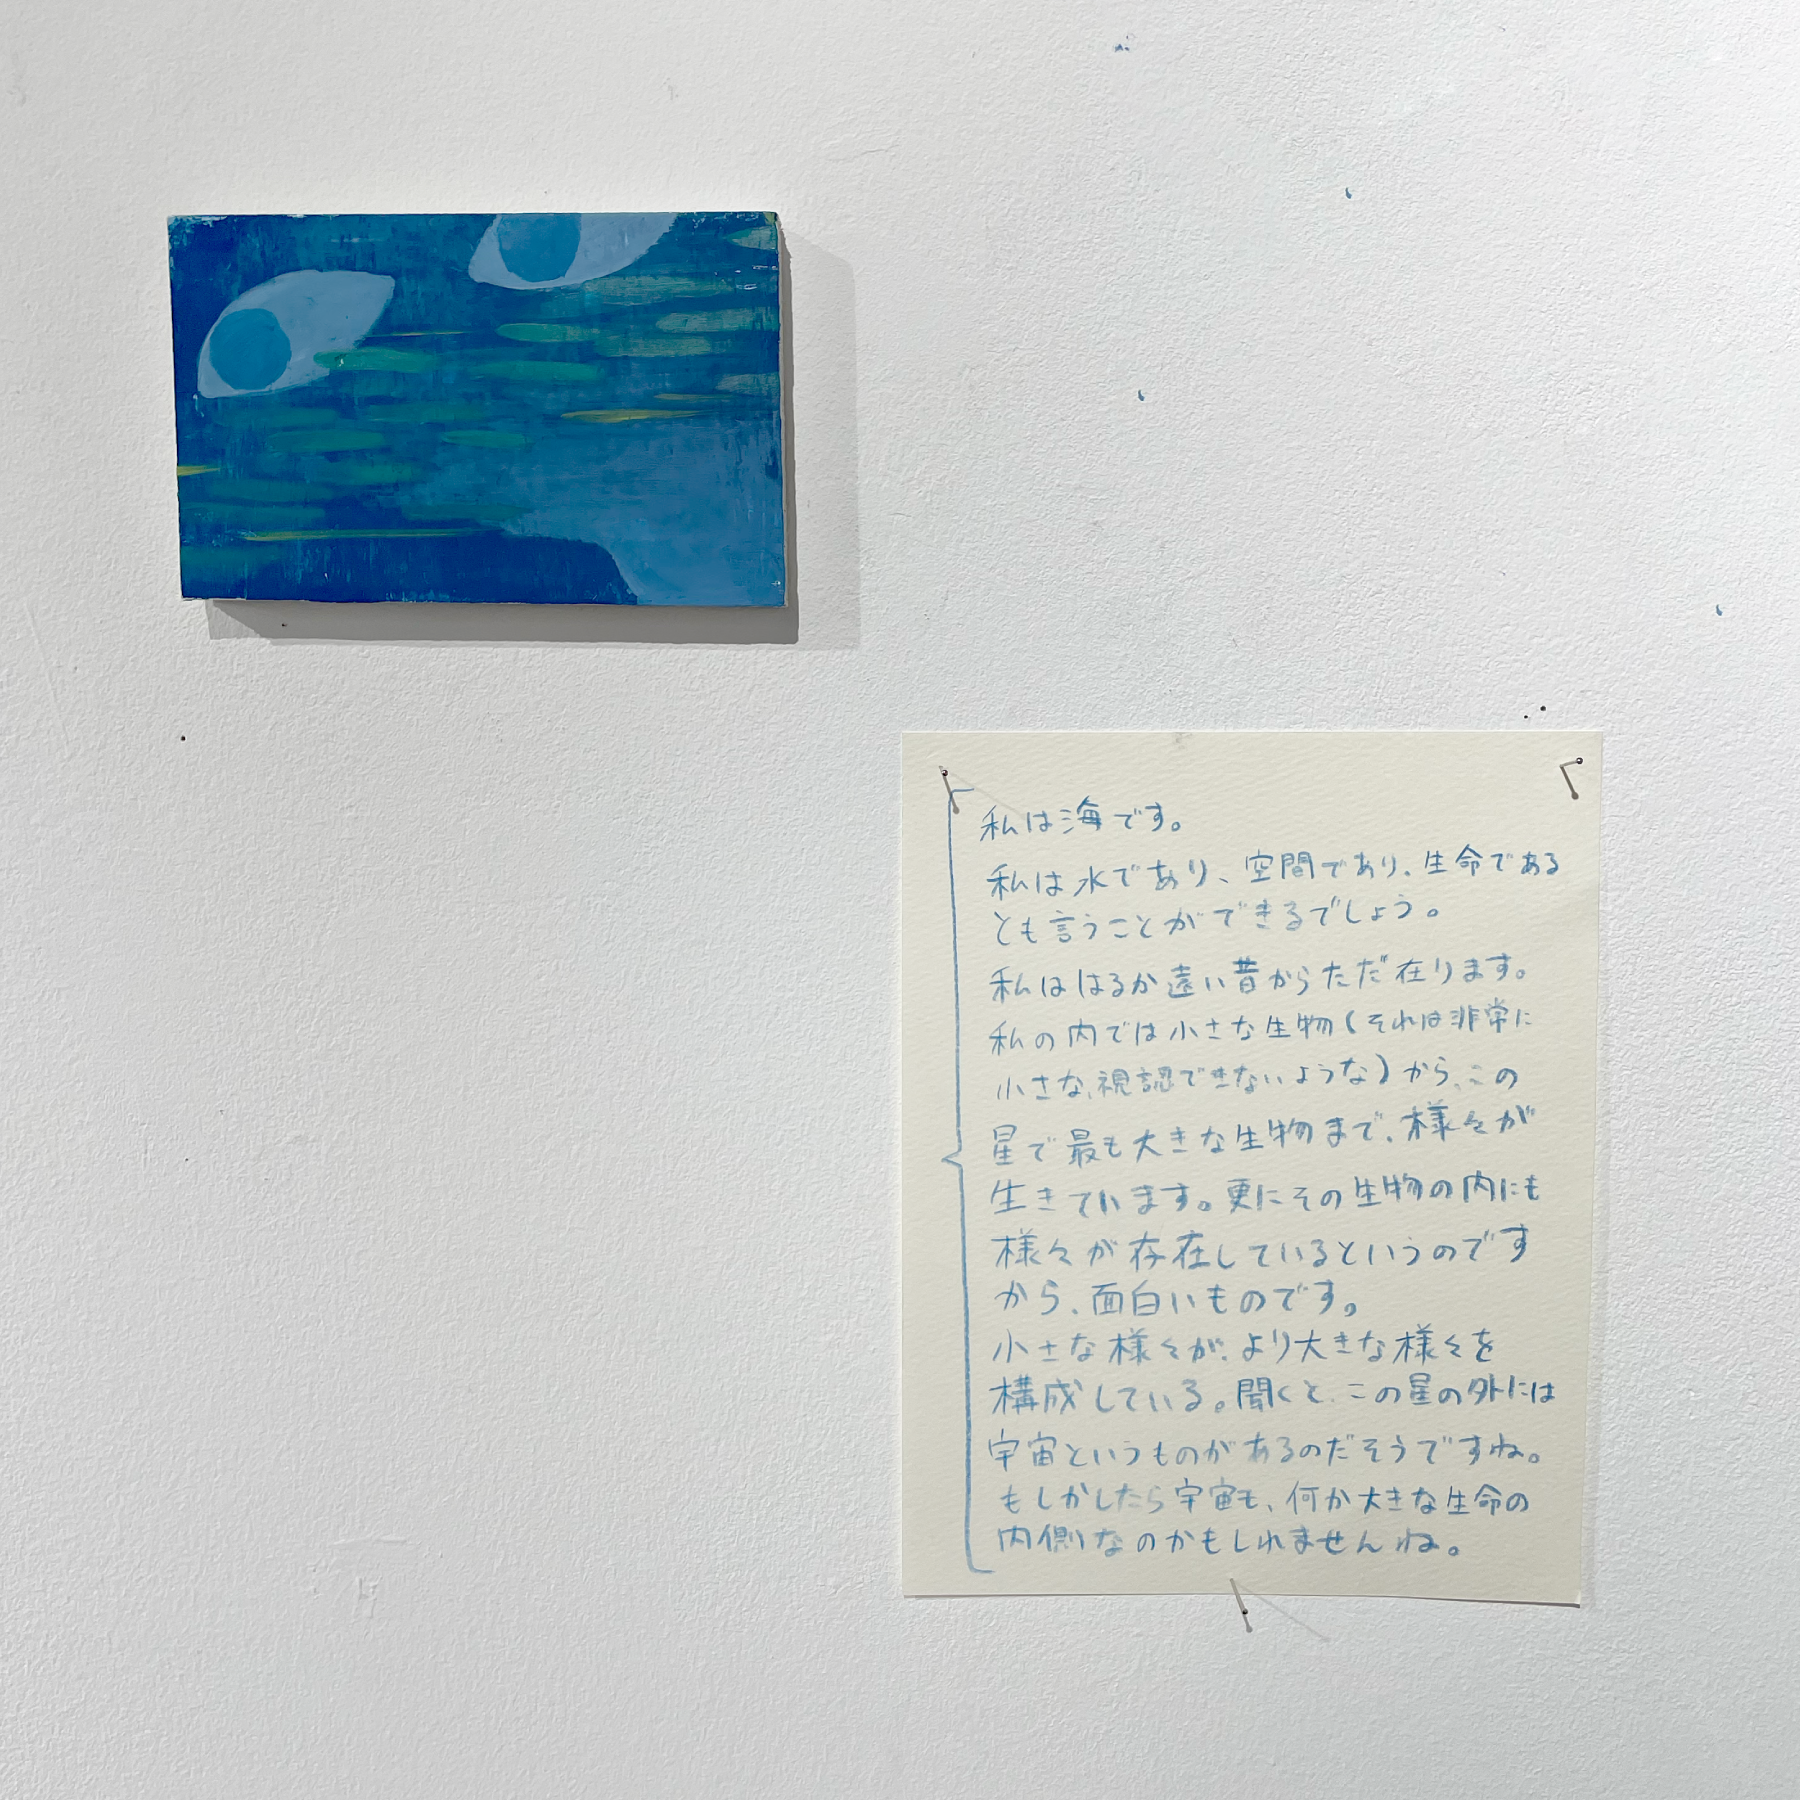 私は海です。
私は水であり、空間であり、生命である
とも言うことができるでしょう。
私ははるか遠い昔からただ在ります。
私の内では小さな生物(それは非常に
小さな、視認できないような)から、この
星で最も大きな生物まで、様々が
生きています。更にその生物の内にも
様々が存在しているというのです
から、面白いものです。
小さな様々が、より大きな様々を
構成している。聞くと、この星の外には
宇宙というものがあるのだそうですね。
もしかしたら宇宙も、何か大きな生命の
内側なのかもしれませんね。